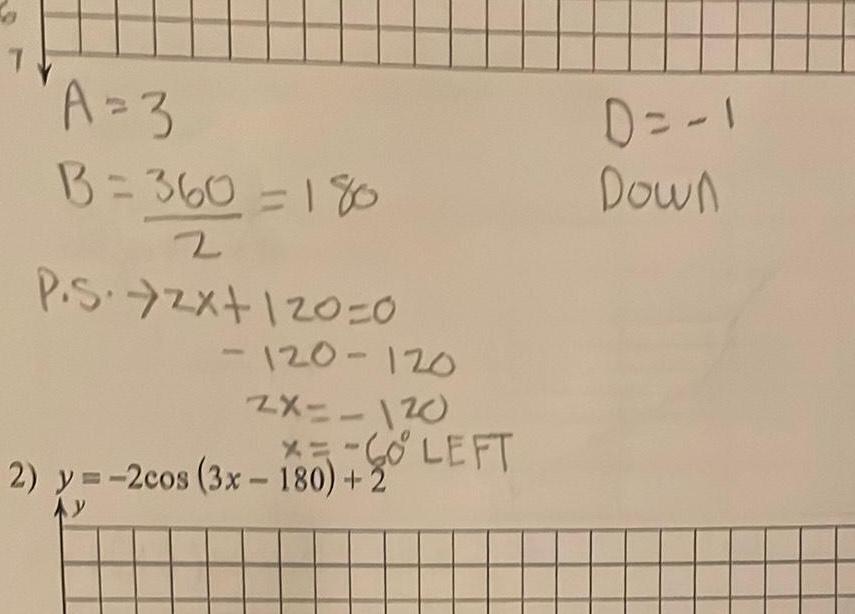 6
7
A = 3
D = -1
B = 360/2 = 180
DOWN
P.S. → 2x + 120 = 0
- 120 - 120
2x = - 120
x = -60° LEFT
2) y = -2cos (3x - 180) + 2
y